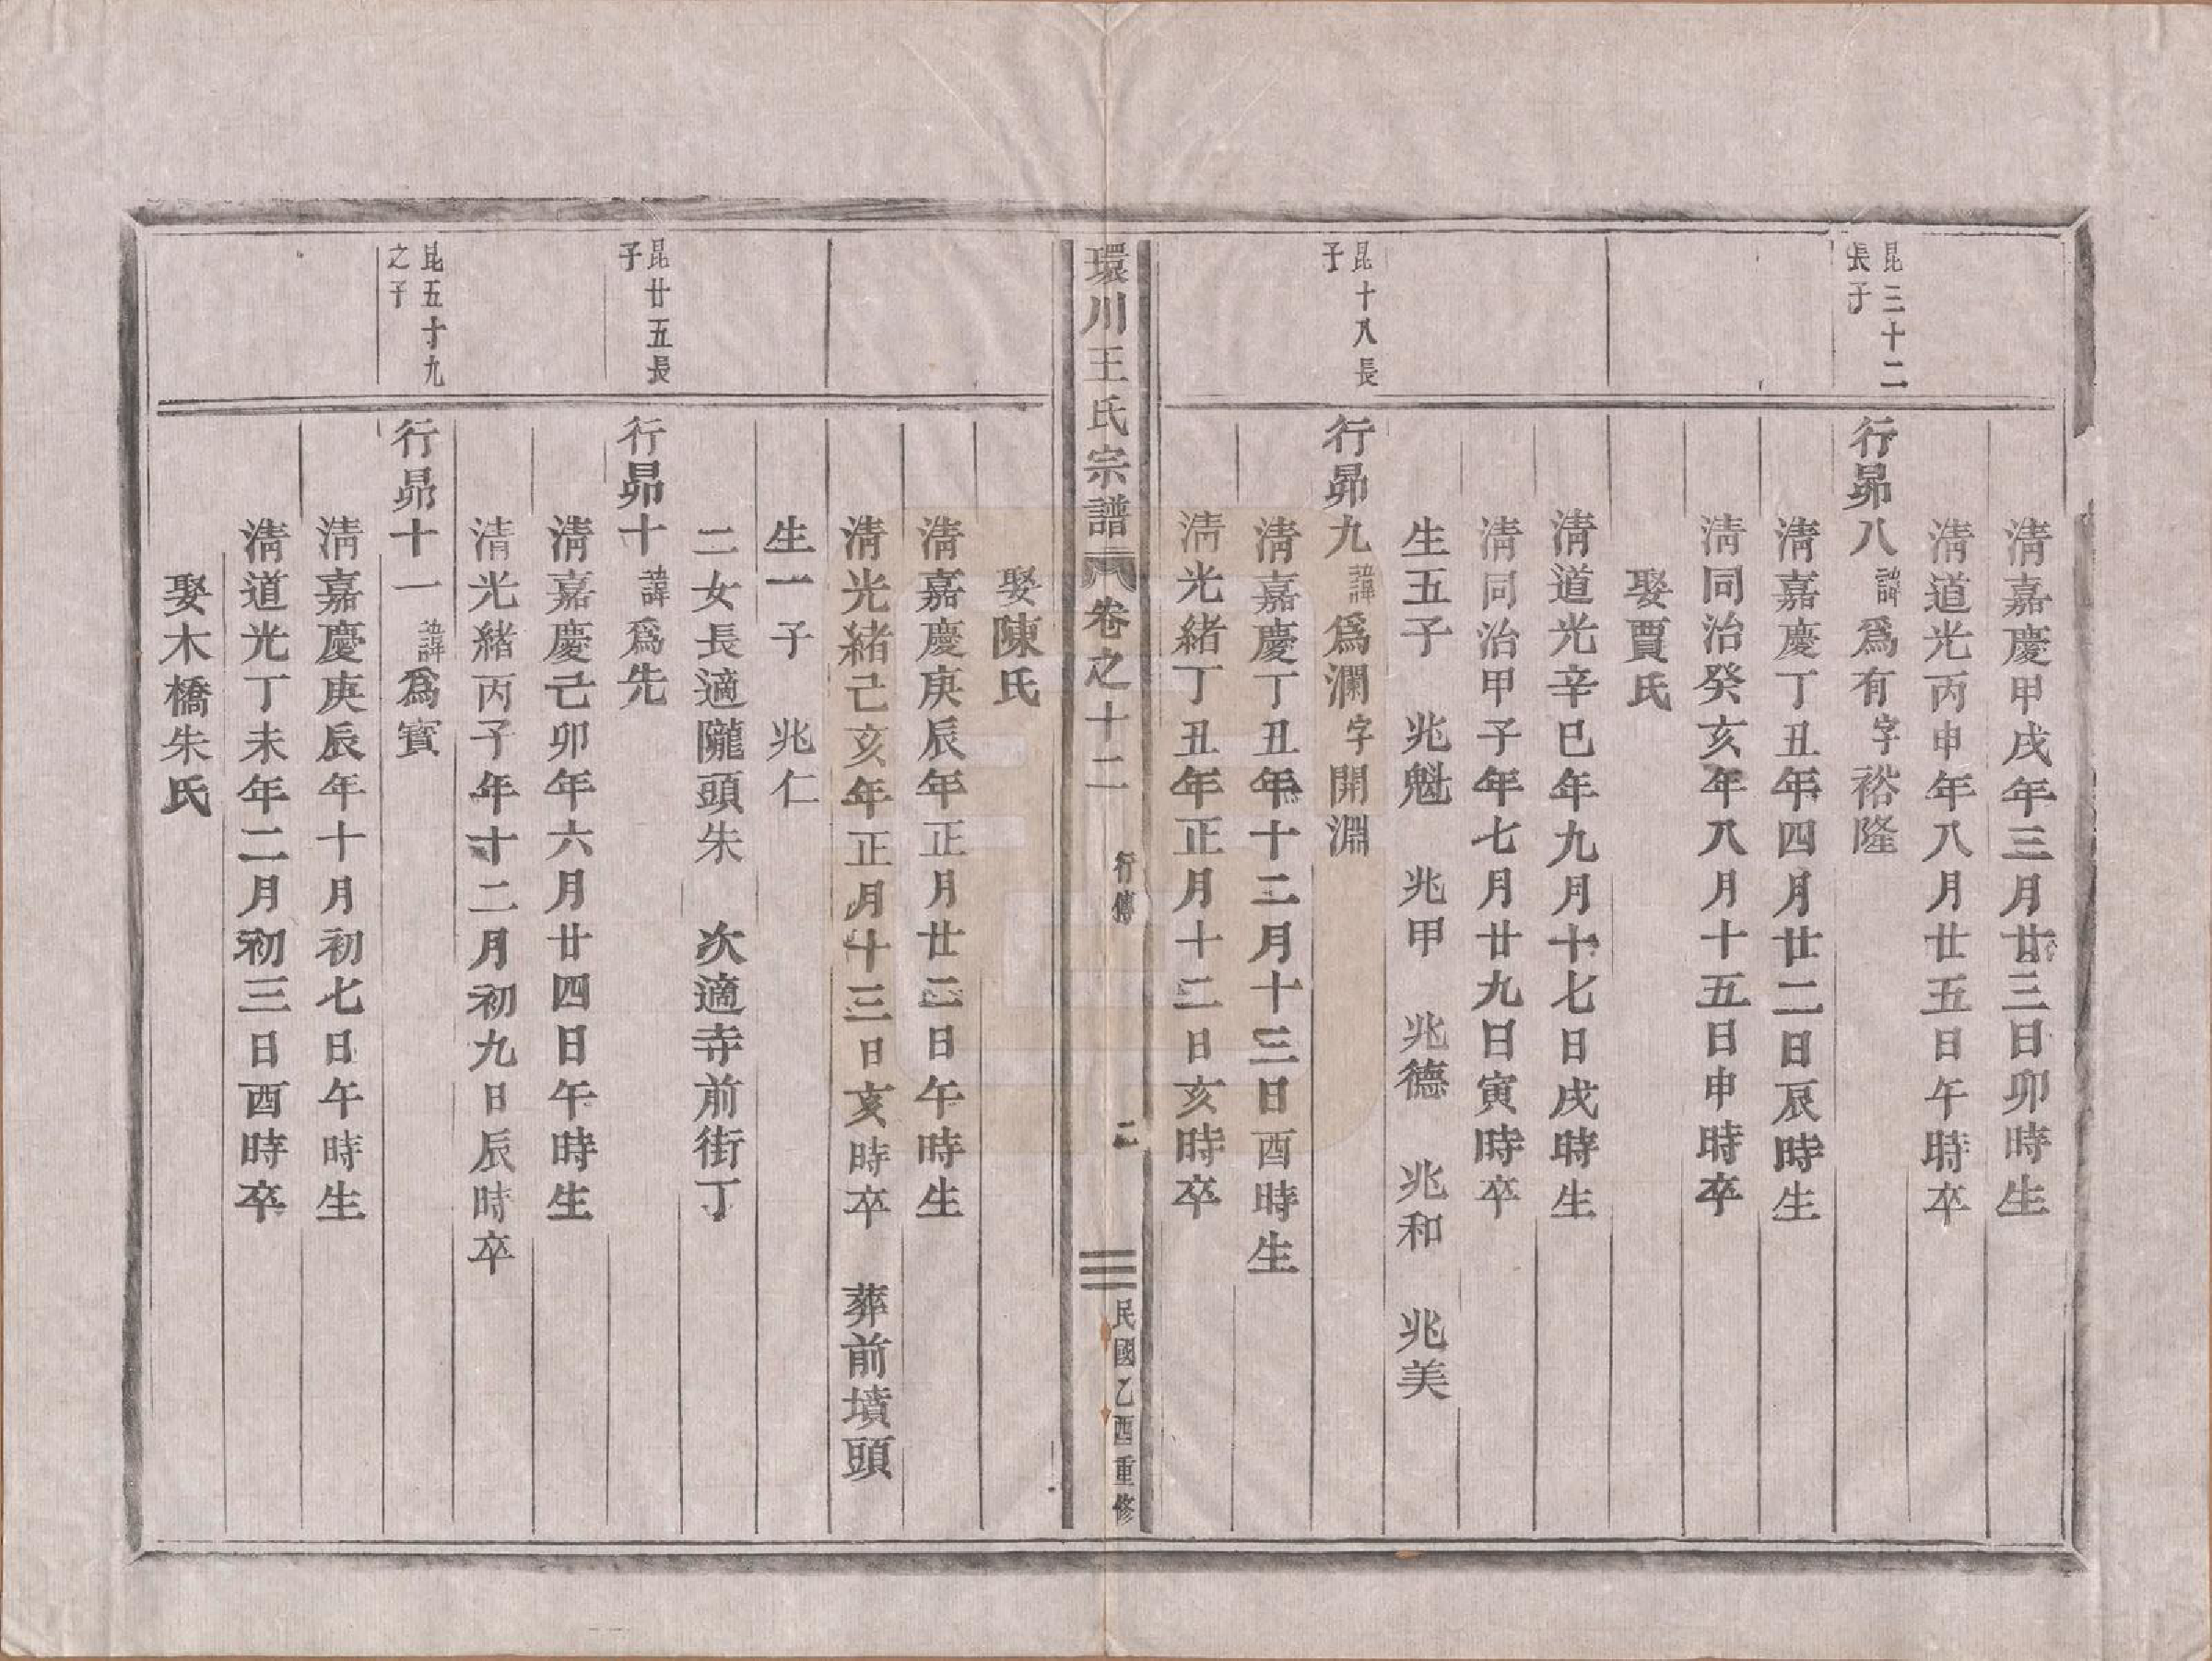 清嘉慶甲戌年三月廿三日卯時生
清道光丙申年八月廿五日午時卒
昆三十二長子
行昴八諱爲有字裕隆
清嘉慶丁丑年四月廿二日辰時生
清同治癸亥年八月十五日申時卒
娶賈氏
清道光辛巳年九月十七日戌時生
清同治甲子年七月廿九日寅時卒
生五子 兆魁 兆甲 兆德 兆和 兆美
昆十八長子
行昴九諱爲瀾字開淵
清嘉慶丁丑年十二月十三日酉時生
清光緒丁丑年正月十二日亥時卒
環川王氏宗譜 卷之十二 行傳 二 民國乙酉重修
娶陳氏
清嘉慶庚辰年正月廿二日午時生
清光緒己亥年正月十三日亥時卒 葬前墳頭
生一子 兆仁
二女長適隴頭朱 次適寺前街丁
昆廿五長子
行昴十諱爲先
清嘉慶己卯年六月廿四日午時生
清光緒丙子年十二月初九日辰時卒
昆五十九之子
行昴十一諱爲寶
清嘉慶庚辰年十月初七日午時生
清道光丁未年二月初三日酉時卒
娶木橋朱氏